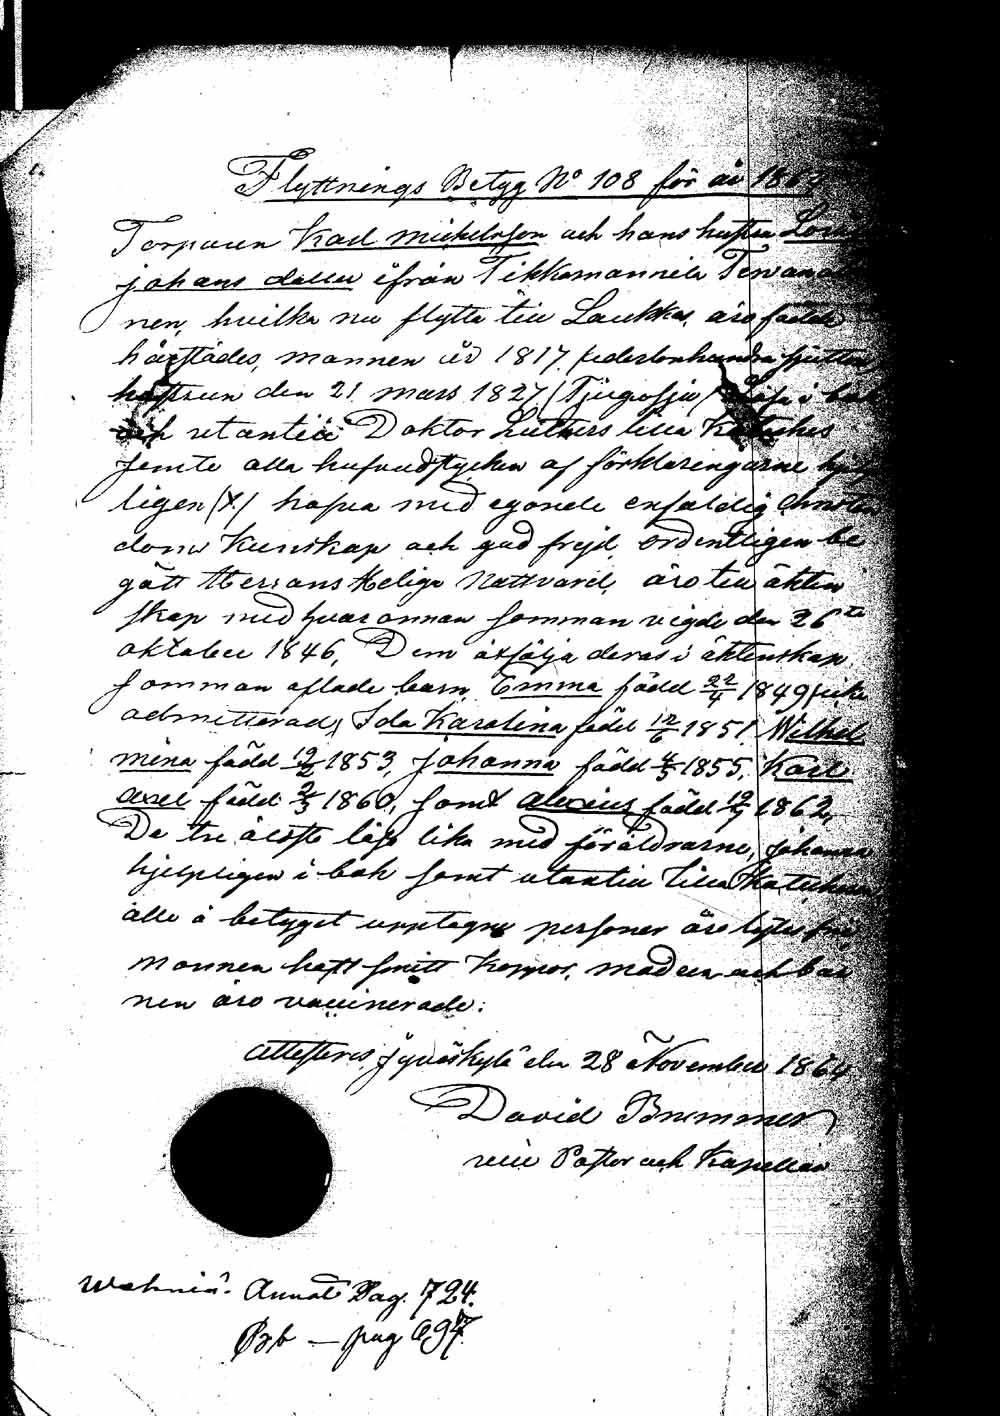 Flyttnings Betyg No 108 för år 1864
Torparen Karl Mickelsson och hans hustru Lovisa
Johans dotter ifrån Tikkamannila
nen, hvilka nu flytta till Laukka, äro födde
härstädes, mannen år 1817, adertonhundra sjutton
hustrun den 21 mars 1827 (Tjugosju) Läsa i bok
och utantill Doktor Luthers lilla Katches
jemte alla hufvudstycken af förklaringarne hjelp
ligen (X) hafva med egande enfaldig Christen
doms Kunskap och god frejd ordentligen be
gått Herrans Heliga Nattvard, äro till äkten
skap med hvarannan samman vigde den 26te
oktober 1846, Dem åtfölja deras i äktenskap
samman aflade barn, Emma född 22/4 1849
admitterad, Ida Karolina född 12/6 1851, Wilhel
mina född 19/2 1853, Johanna född 4/5 1855, Karl
Axel född 2/3 1860, samt Alexius född 19/7 1862,
De tre äldsta läsa lika med föräldrarne, Johanna
hjelpligen i bok samt utantill lilla Katechesen
alla å betyget upptagne personer äro lytesfria
Mannen haft smitt koppor, modren och bar
nen äro vaccinerade:
Attesteras, Jyväskylä den 28 November 1864
David Bremmer
vice Pastor och Kapellan
Annat Pag. 724.
Bb — pag 697